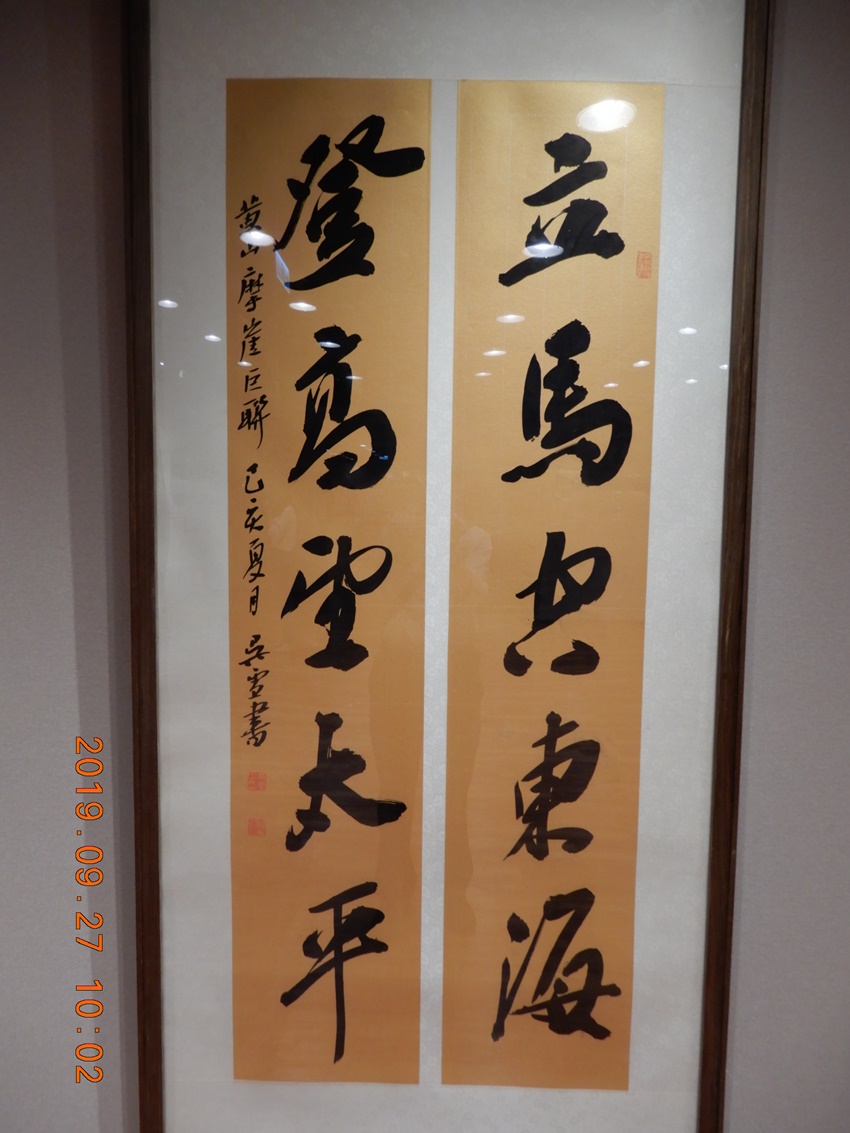 立馬空東海
登高望太平
黄山摩崖巨聯 己亥夏月 吴雪書
2019.09.27 10:02